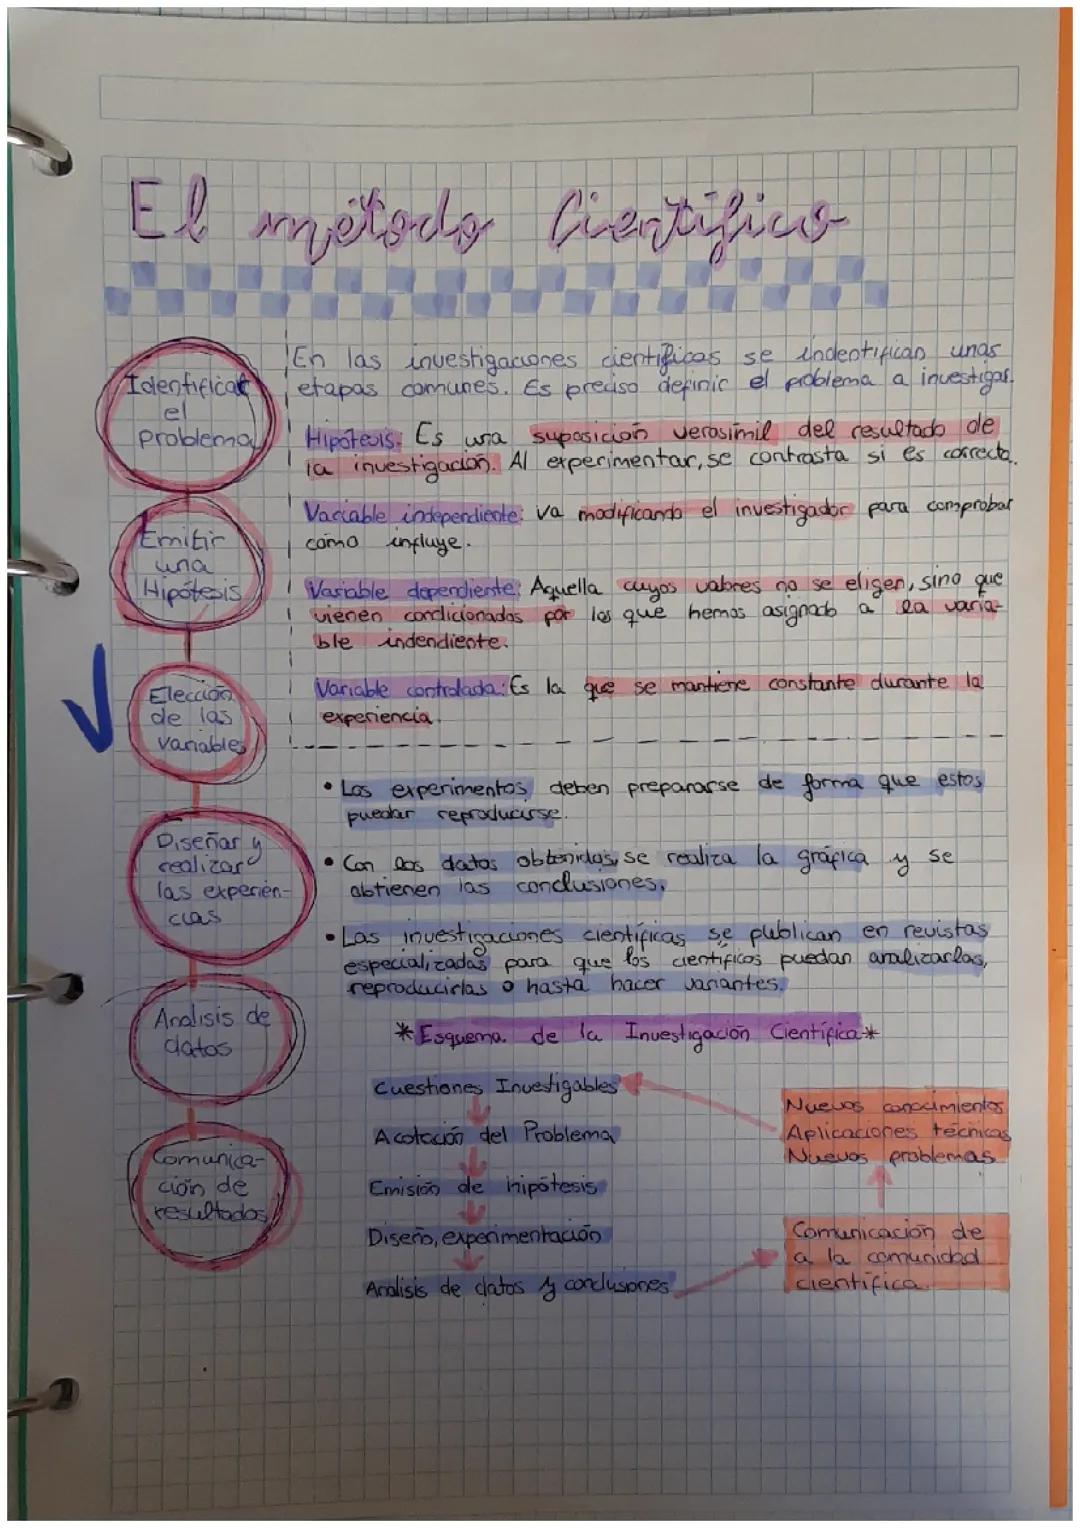 El método Científico
Identificar
el
problema
En las investigaciones científicas se indentifican unas
etapas comunes. Es preciso definir el problema a investigar.
Hipótesis: Es una suposición verosímil del resultado de
la investigación. Al experimentar, se contrasta si es correcta.
Emitir
una
Hipótesis
Variable independiente: va modificando el investigador para comprobar
cómo influye.
Variable dependiente: Aquella cuyos valores no se eligen, sino que
vienen condicionados por los que hemos asignado a la varia-
ble indendiente.
Elección
de las
variables
Variable controlada: Es la que se mantiene constante durante la
experiencia.
Diseñar y
realizar
las experien-
cias
• Los experimentos deben prepararse de forma que estos
puedan reproducirse.
• Con los datos obtenidos, se realiza la gráfica y se
obtienen las conclusiones.
• Las investigaciones científicas se publican en revistas
especializadas para que los científicos puedan analizarlas,
reproducirlas o hasta hacer variantes.
Analisis de
datos
Comunica-
ción de
resultados
*Esquema de la Investigación Científica*
Cuestiones Investigables
Acotación del Problema
Emisión de hipótesis
Diseño, experimentación
Analisis de datos y conclusiones
Nuevos conocimientos
Aplicaciones técnicas
Nuevos problemas
Comunicación de
a la comunidad
científica.